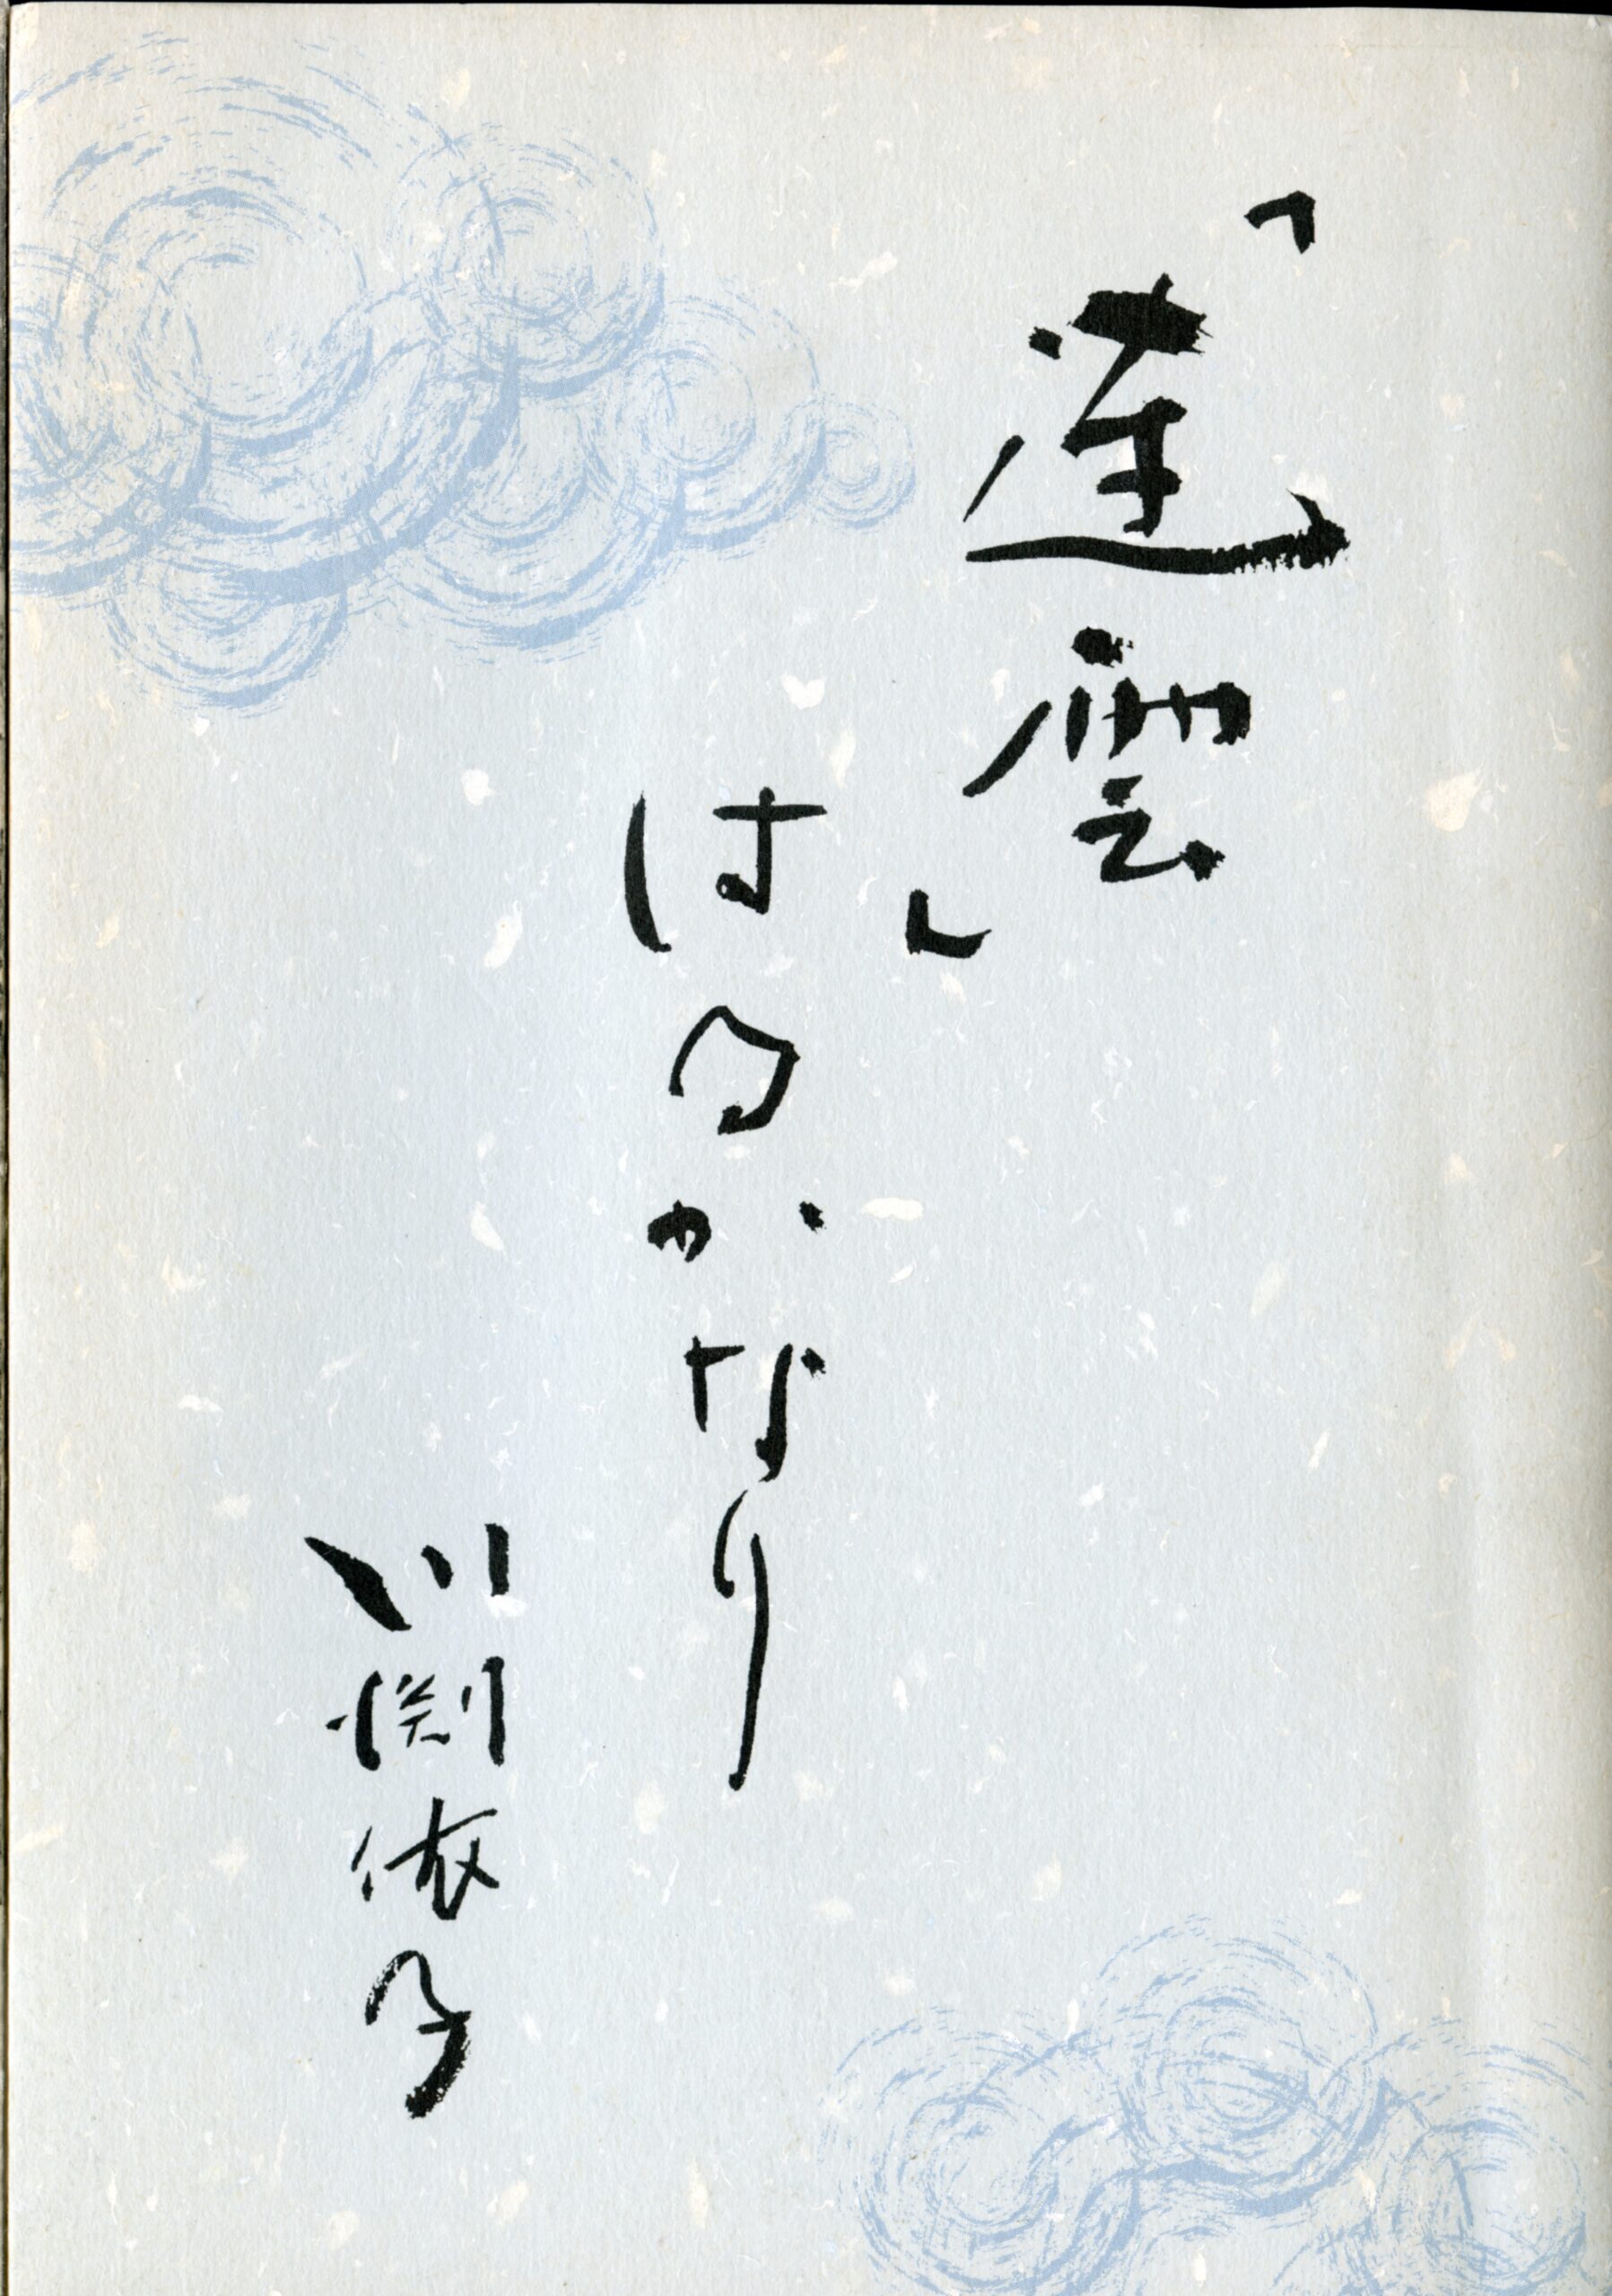 雲」
はるかなり
川渕依子